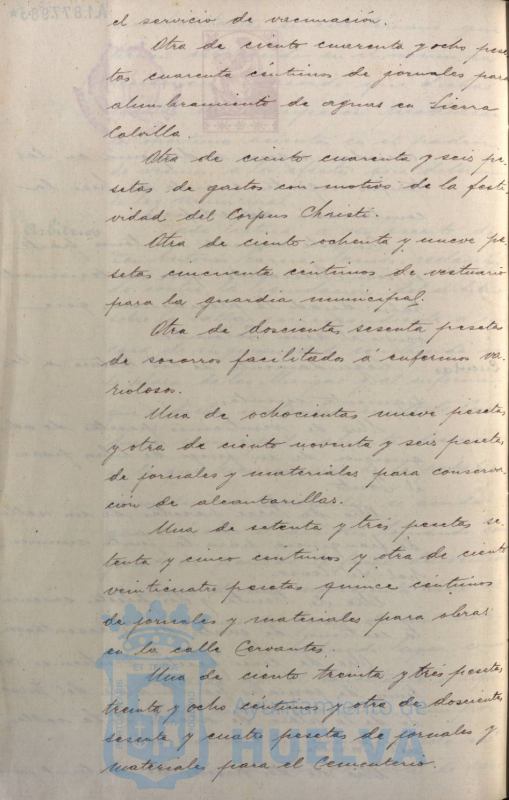 el servicio de vacunación.
Otra de ciento cuarenta y ocho pese
tas cuarenta céntimos de jornales para
alumbramiento de aguas en Sierra
Calvilla.
Otra de ciento cuarenta y seis pe
setas de gastos con motivo de la festi
vidad del Corpus Christi.
Otra de ciento ochenta y nueve pe
setas cincuenta céntimos de vestuario
para la guardia municipal.
Otra de doscientas sesenta pesetas
de socorros facilitados á enfermos va-
riolosos.
Una de ochocientas nueve pesetas
y otra de ciento noventa y seis pesetas
de jornales y materiales para conserva-
ción de alcantarillas.
Una de setenta y tres pesetas se-
tenta y cinco céntimos y otra de ciento
veinticuatro pesetas quince céntimos
de jornales y materiales para obras
en la calle Cervantes.
Una de ciento treinta y tres pesetas
treinta y ocho céntimos y otra de doscientas
sesenta y cuatro pesetas de jornales y
materiales para el Cementerio.
Ayuntamiento de
HUELVA